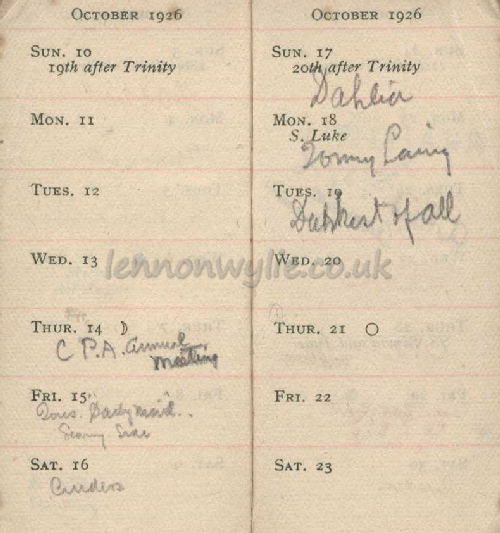 October 1926
Sun. 10
19th after Trinity
Mon. 11
Tues. 12
Wed. 13
Thur. 14
C P.A. Annual
Meeting
Fri. 15
Daily Maid..
Sunny Side
Sat. 16
Cinders
October 1926
Sun. 17
20th after Trinity
Dahlia
Mon. 18
S. Luke
Tommy
Tues. 19
of all
Wed. 20
Thur. 21
Fri. 22
Sat. 23
lennonwylie.co.uk